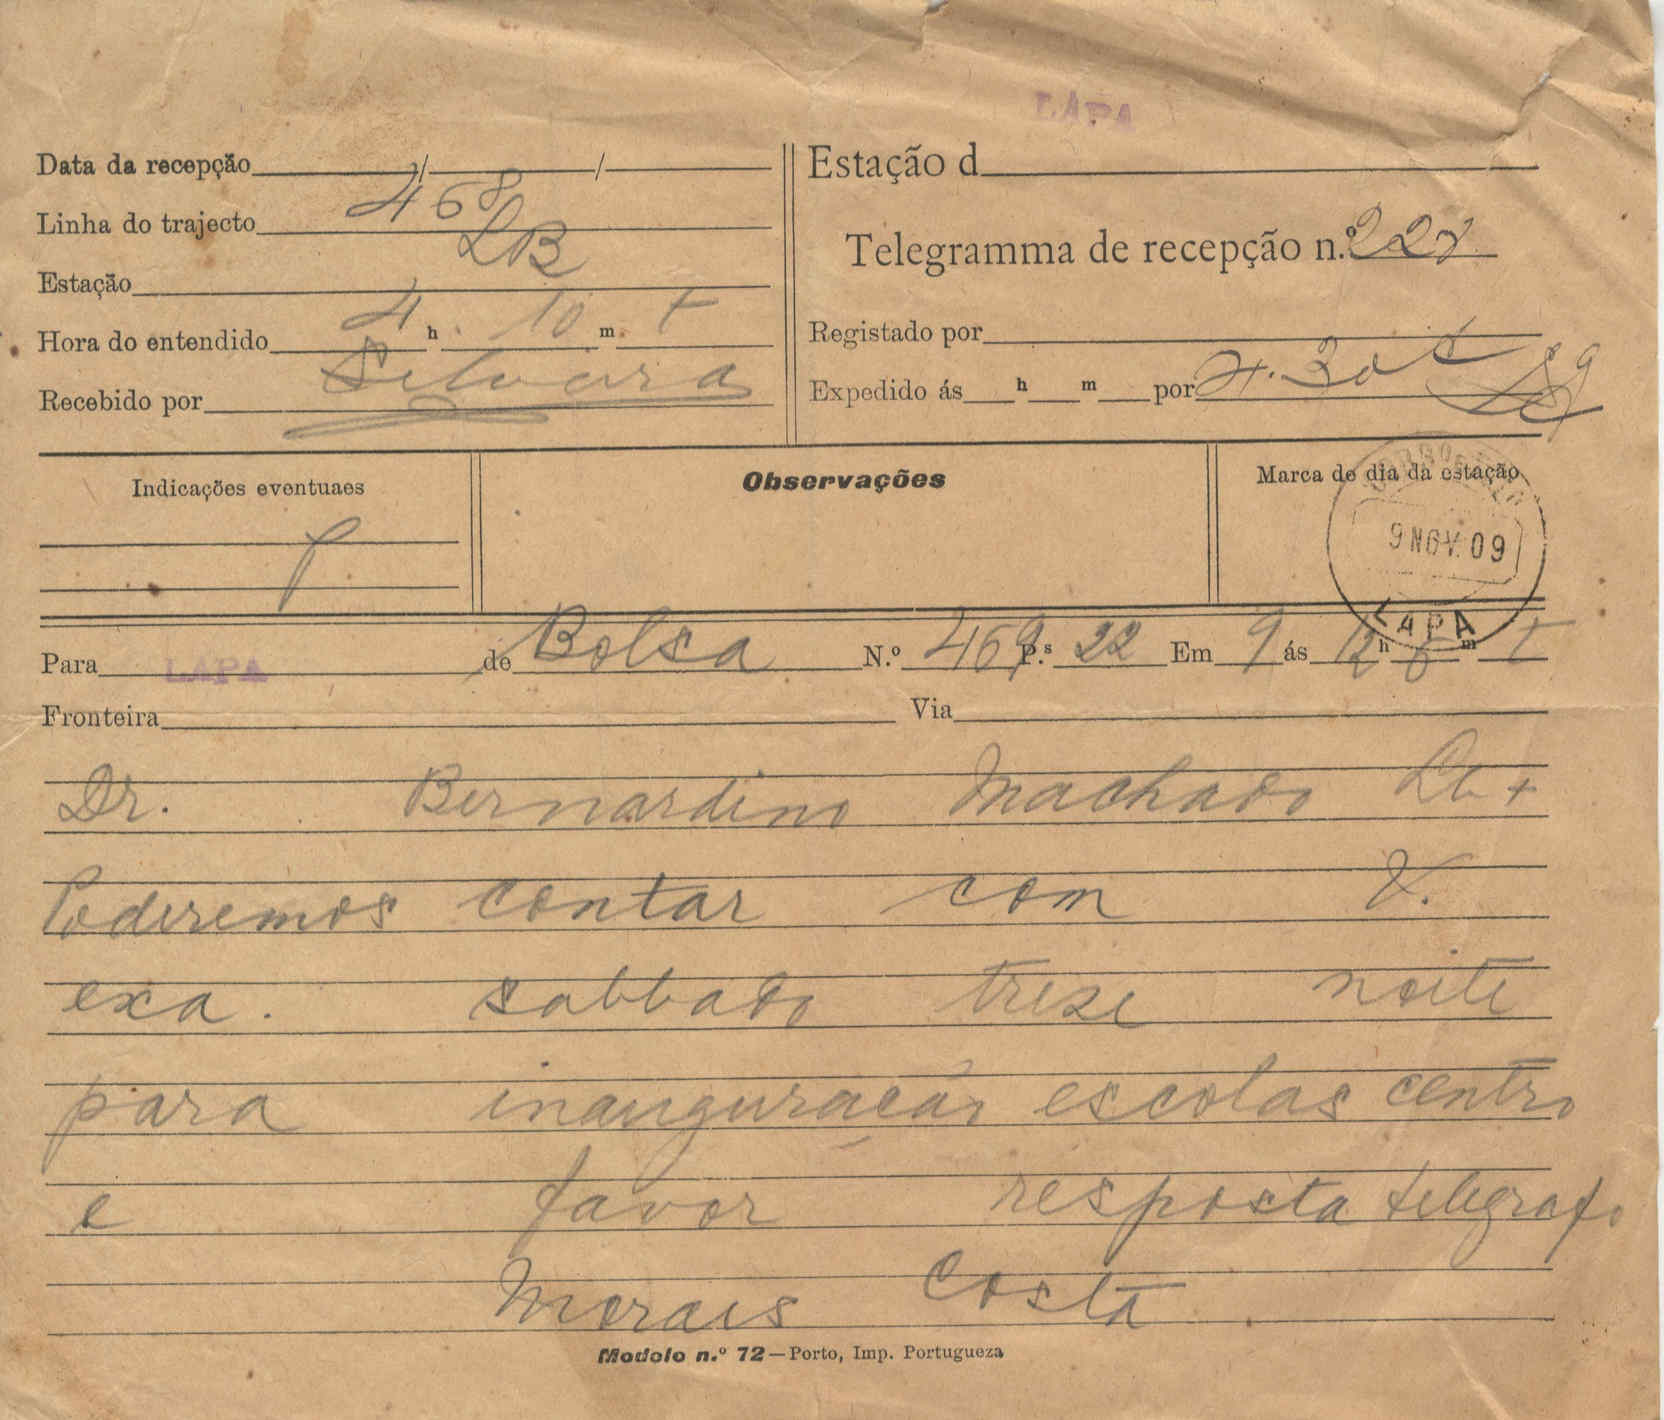 LAPA
Data da recepção / /
Linha do trajecto 468
LB
Estação
Hora do entendido 4 h 10 m t
Recebido por Silveira
Estação d
Telegramma de recepção n.º 228
Registado por
Expedido ás h m por 4.30 t
Indicações eventuaes
Observações
Marca do dia da estação
9 NOV. 09
LAPA
Para LAPA de Bolsa N.º 469 P.s 22 Em 9 ás 12 h 6 m t
Fronteira Via
Dr. Bernardino Machado Lb +
Poderemos contar com V.
exa. sabbado treze noite
para inauguração escolas centro
e favor resposta telegrafo
Morais Costa
Modelo n.º 72—Porto, Imp. Portugueza